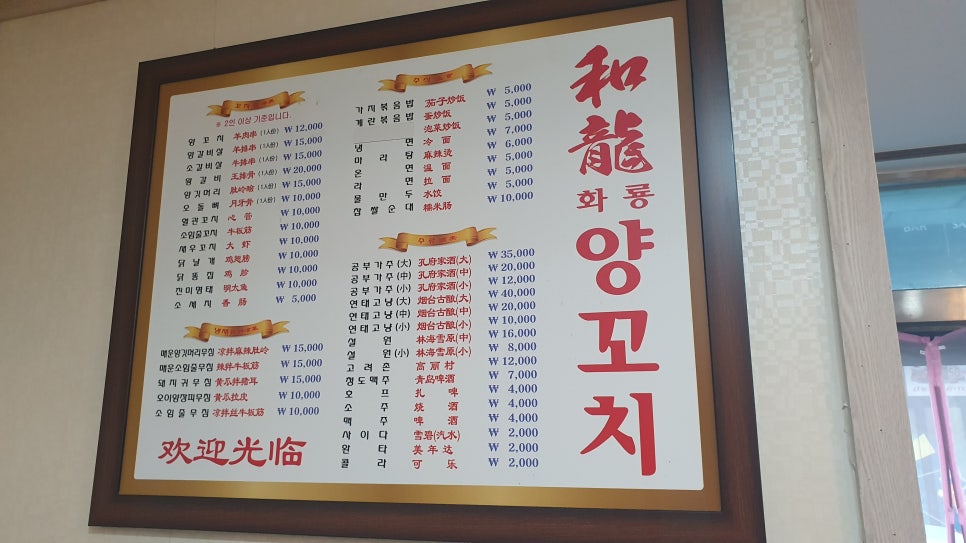 꼬치
※ 2인 이상 기준입니다.
양 꼬 치 羊肉串 (1人份) ₩ 12,000
양갈비살 羊排串 (1人份) ₩ 15,000
소갈비살 牛排串 (1人份) ₩ 15,000
왕 갈 비 王排骨 (1人份) ₩ 20,000
양깃머리 (1人份) ₩ 15,000
오 돌 뼈 月牙骨 (1人份) ₩ 10,000
혈관꼬치 心管 ₩ 10,000
소힘줄꼬치 牛板筋 ₩ 10,000
새우꼬치 大虾 ₩ 10,000
닭 날 개 鸡翅膀 ₩ 10,000
닭 똥 집 鸡胗 ₩ 10,000
찐미명태 明太鱼 ₩ 10,000
소 세 지 香肠 ₩ 5,000
냉채
매운양깃머리무침 凉拌麻辣肚岭 ₩ 15,000
매운소힘줄무침 辣拌牛板筋 ₩ 15,000
돼지귀무침 黄瓜拌猪耳 ₩ 15,000
오이양장피무침 黄瓜拉皮 ₩ 10,000
소힘줄무침 凉拌丝牛板筋 ₩ 10,000
欢迎光临
주식
가지볶음밥 茄子炒饭 ₩ 5,000
계란볶음밥 蛋炒饭 ₩ 5,000
泡菜炒饭 ₩ 5,000
냉 면 冷面 ₩ 7,000
마 라 탕 麻辣烫 ₩ 6,000
온 면 温面 ₩ 5,000
라 면 拉面 ₩ 5,000
물 만 두 水饺 ₩ 5,000
찹쌀순대 糯米肠 ₩ 10,000
주류
공부가주(大) 孔府家酒(大) ₩ 35,000
공부가주(中) 孔府家酒(中) ₩ 20,000
공부가주(小) 孔府家酒(小) ₩ 12,000
연태고냥(大) 烟台古酿(大) ₩ 40,000
연태고냥(中) 烟台古酿(中) ₩ 20,000
연태고냥(小) 烟台古酿(小) ₩ 10,000
설 원 林海雪原(中) ₩ 16,000
설 원(小) 林海雪原(小) ₩ 8,000
고 려 촌 高丽村 ₩ 12,000
청도맥주 青岛啤酒 ₩ 7,000
호 프 扎啤 ₩ 4,000
소 주 烧酒 ₩ 4,000
맥 주 啤酒 ₩ 4,000
사 이 다 雪碧(汽水) ₩ 2,000
환 타 美年达 ₩ 2,000
콜 라 可乐 ₩ 2,000
和龍
화룡
양꼬치